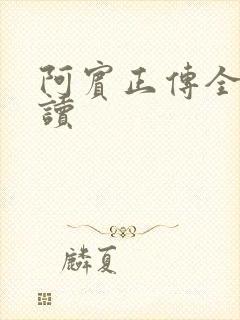 阿賓正傳全
讀
麟夏